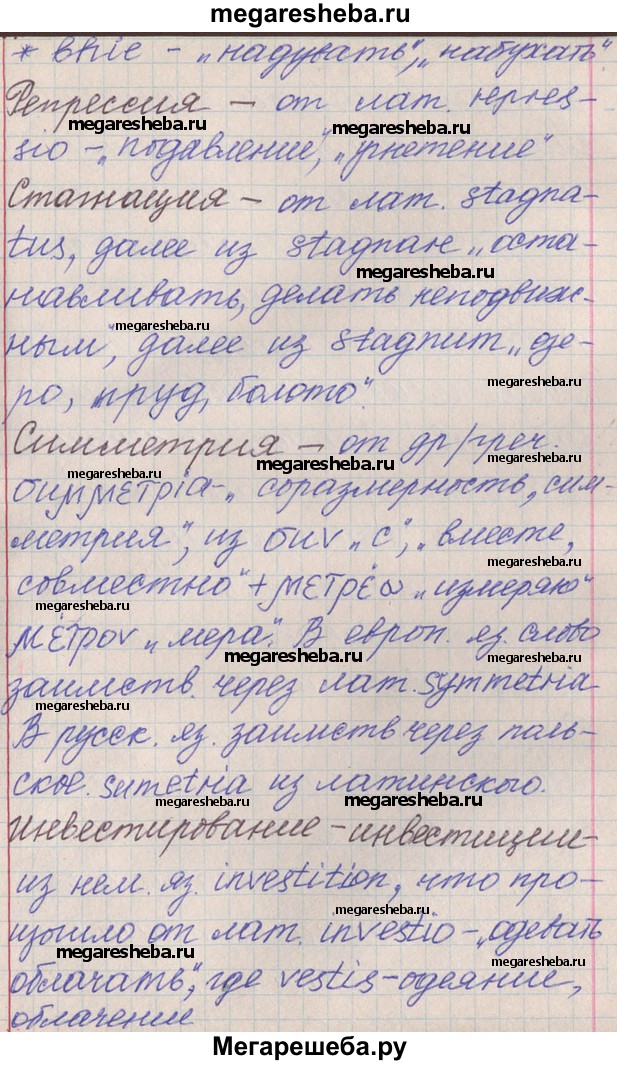 megaresheba.ru
* bhle - „надувать", „набухать".
Репрессия – от лат. repres-
megaresheba.ru
megaresheba.ru
sio - „подавление", „угнетение"
Стагнация – от лат. stagna-
tus, далее из stagnare „оста-
megaresheba.ru
навливать, делать неподвиж-
megaresheba.ru
ным", далее из stagnum „озе-
megaresheba.ru
ро, пруд, болото".
Симметрия – от др/греч.
megaresheba.ru
megaresheba.ru
συμμετρία - „соразмерность, сим-
метрия", из συν „с", „вместе,
megaresheba.ru
совместно" + μετρέω „измеряю"
megaresheba.ru
μέτρον „мера". В европ. яз. слово
megaresheba.ru
megaresheba.ru
заимств. через лат. symmetria
В русск. яз. заимств через поль-
ское. sumetria из латинского.
megaresheba.ru
megaresheba.ru
Инвестирование - инвестиции -
из нем. яз. investition, что про-
megaresheba.ru
изошло от лат. investio - „одевать
megaresheba.ru
megaresheba.ru
облачать", где vestis - одеяние,
облачение
Мегарешеба.ру